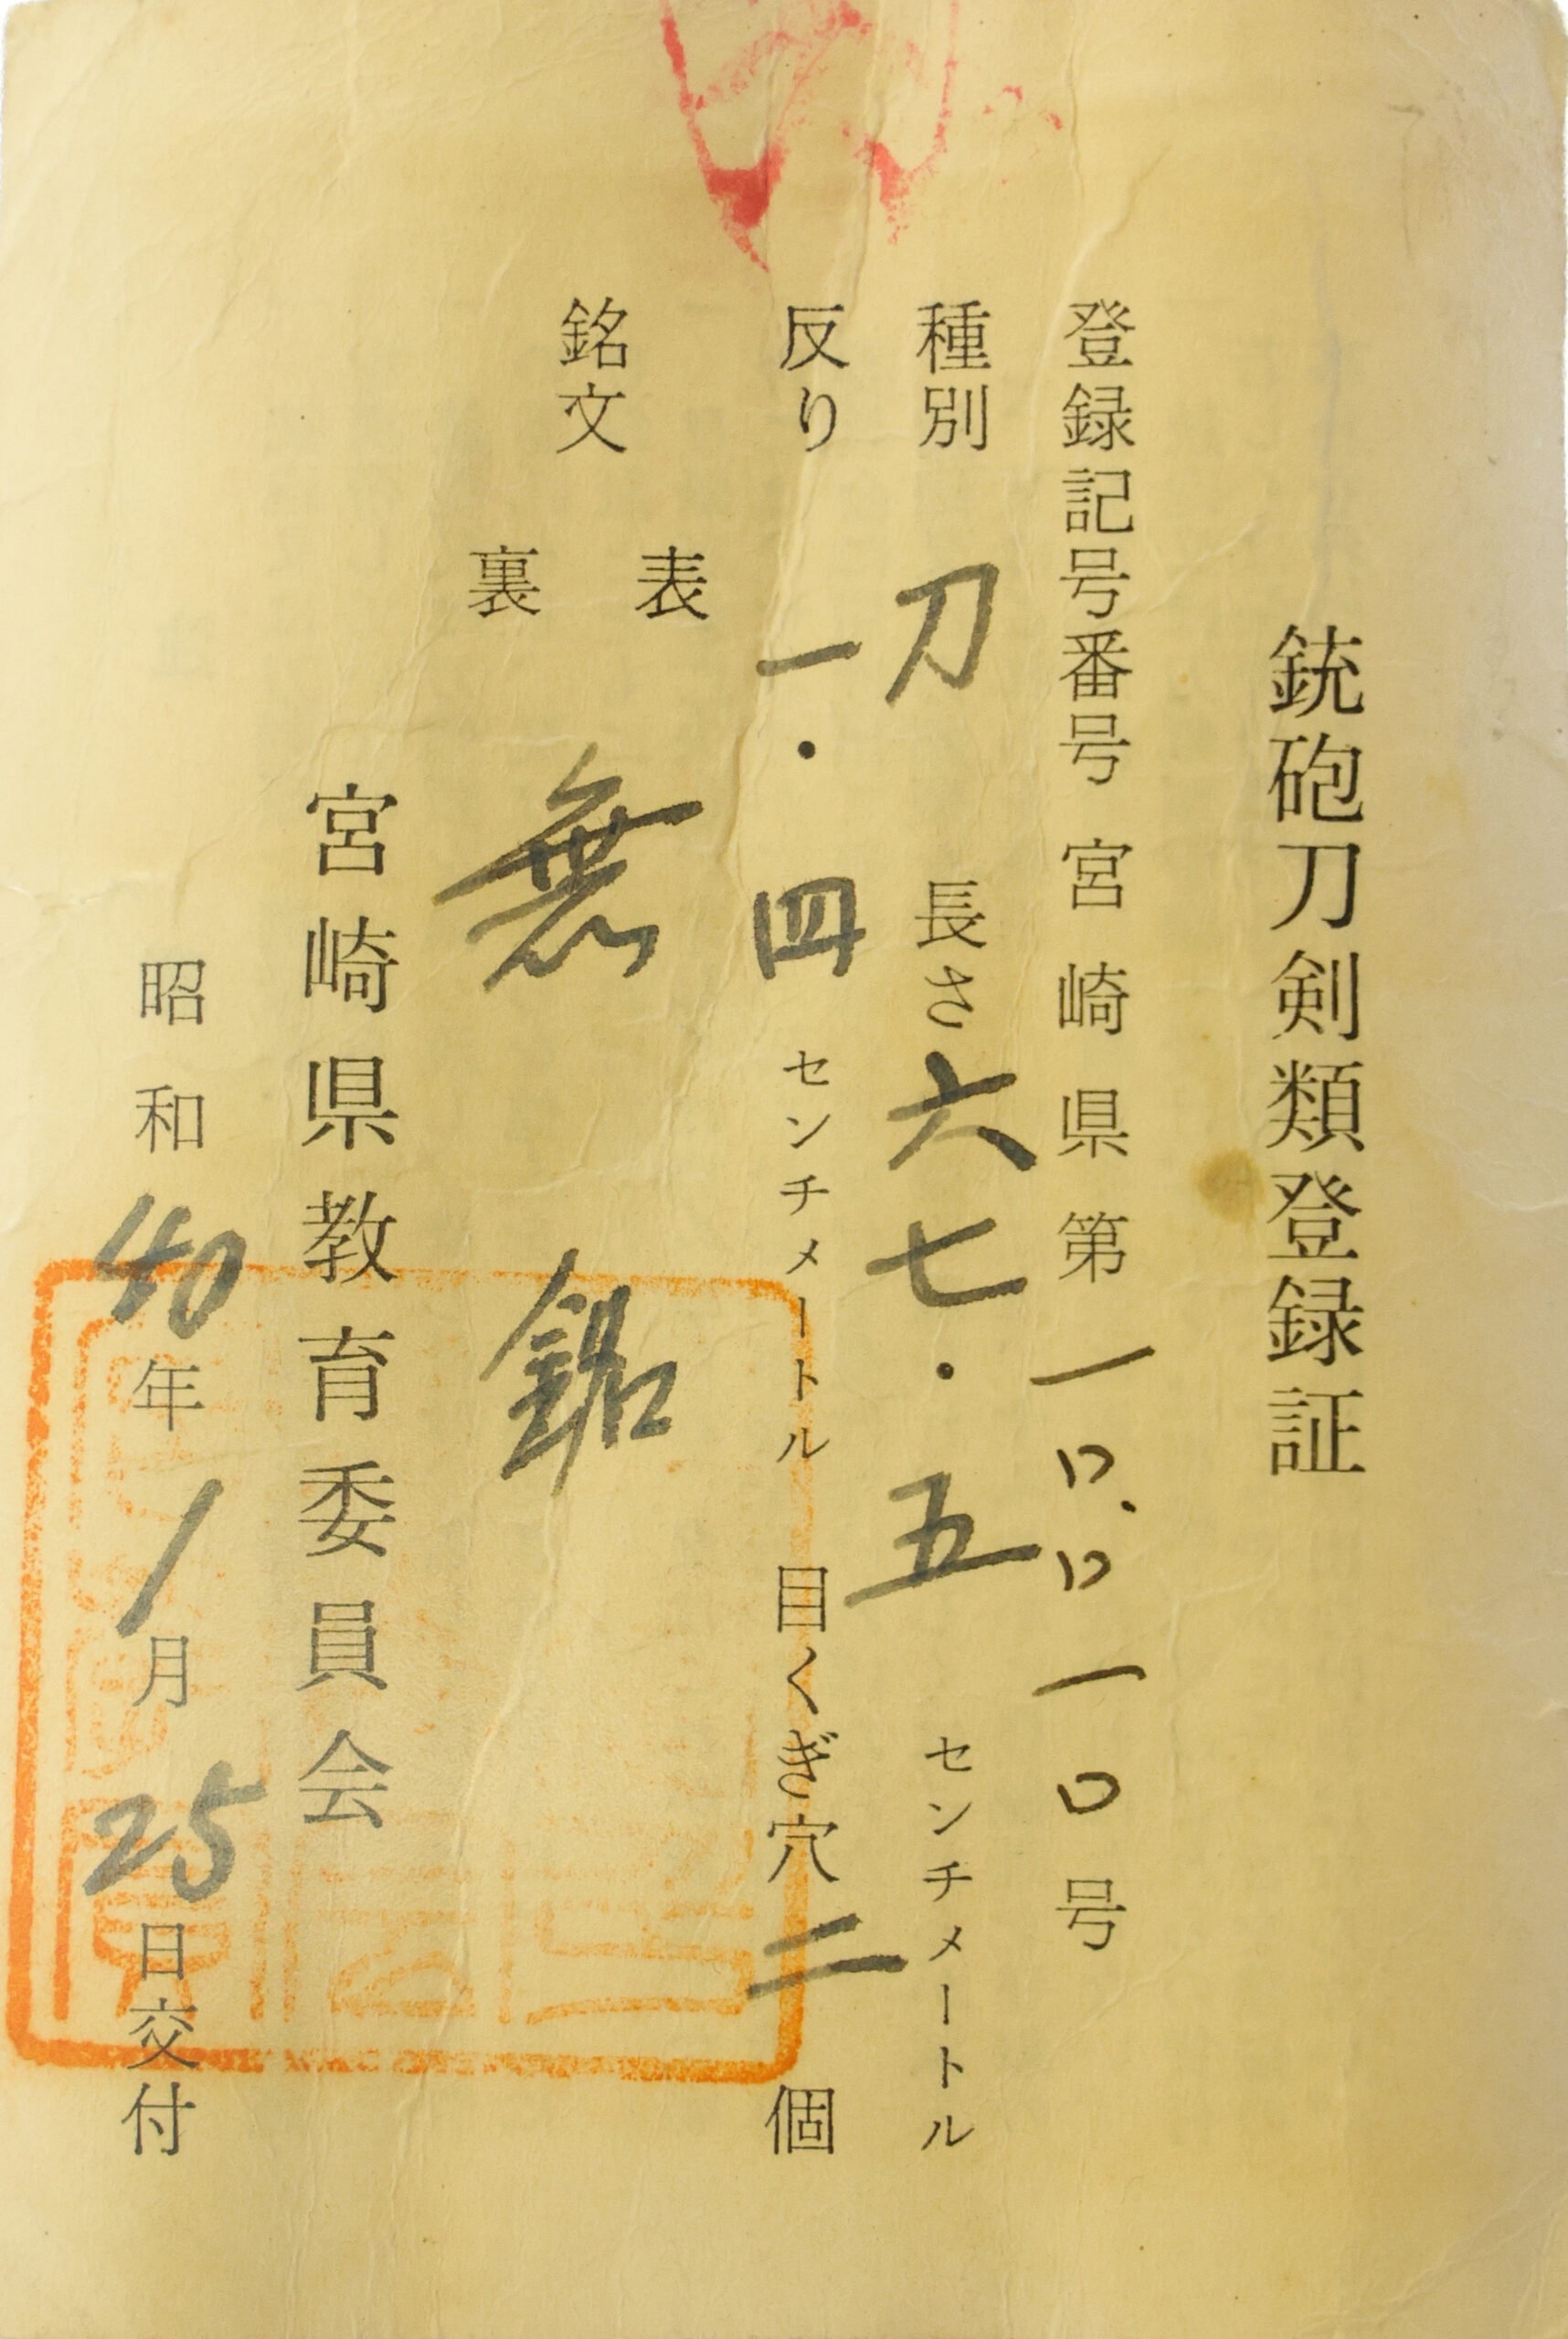 銃砲刀剣類登録証
登録記号番号 宮崎県第一〇〇一〇号
種別 刀 長さ 六七・五 センチメートル
反り 一・四 センチメートル 目くぎ穴 二 個
銘文 表 裏 無銘
宮崎県教育委員会
昭和40年1月25日交付